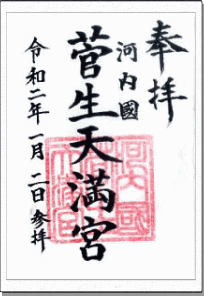 奉拝
河内國
菅生天満宮
令和二年一月二日参拝